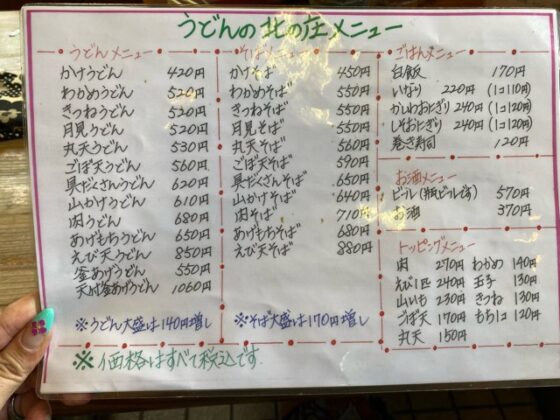 うどんの北の庄メニュー
うどんメニュー
かけうどん 420円
わかめうどん 520円
きつねうどん 520円
月見うどん 520円
丸天うどん 530円
ごぼ天うどん 560円
具だくさんうどん 620円
山かけうどん 610円
肉うどん 680円
あげもちうどん 650円
えび天うどん 850円
釜あげうどん 550円
天付釜あげうどん 1060円
※うどん大盛は140円増し
そばメニュー
かけそば 450円
わかめそば 550円
きつねそば 550円
月見そば 550円
丸天そば 560円
ごぼ天そば 590円
具だくさんそば 650円
山かけそば 640円
肉そば 710円
あげもちそば 680円
えび天そば 880円
※そば大盛は170円増し
ごはんメニュー
白飯 170円
いなり 220円 (1コ110円)
かしわおにぎり 240円 (1コ120円)
しそおにぎり 240円 (1コ120円)
巻き寿司 120円
お酒メニュー
ビール (瓶ビールです) 570円
お酒 370円
トッピングメニュー
肉 270円 わかめ 140円
えび1匹 240円 玉子 130円
山いも 230円 きつね 130円
ごぼ天 170円 もち1コ 120円
丸天 150円
※価格はすべて税込です